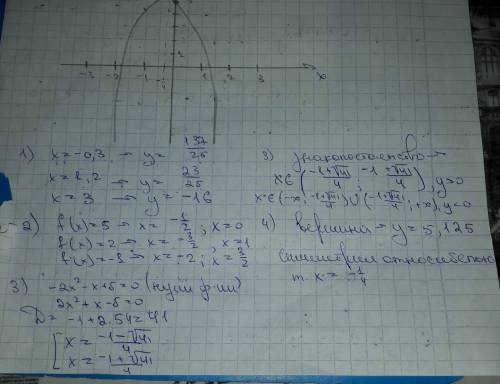 2
-3 -2 -1 -1/4 1 2 3 x
1) x = -0,3 → y = 137/25
x = 1,2 → y = 23/25
x = 3 → y = -16
2) f(x) = 5 → x = -1/2; x = 0
f(x) = 2 → x = -3/2, x = 1
f(x) = -1 → x = -2; x = 3/2
3) -2x² - x + 5 = 0 (нули ф-ии)
2x² + x - 5 = 0
D = -1 + 2.54 = 41
[ x = -1 - √41 / 4
x = -1 + √41 / 4
3) знакопостоянство →
x ∈ ( -1+√41 / 4 ; -1-√41 / 4 ), y > 0
x ∈ (-∞; -1+√41 / 4) ∪ (-1+√41 / 4; +∞), y < 0
4) вершина → y = 5,125
симметрия относительно
т. x = -1/4